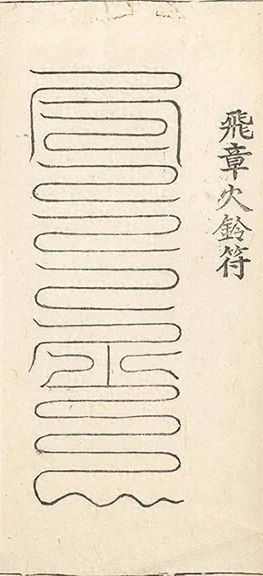 飛章火鈴符